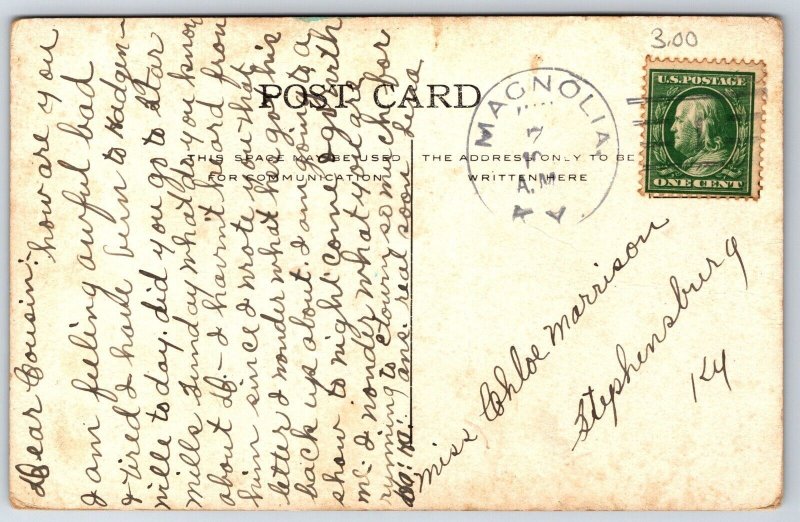 3.00
U.S. POSTAGE
ONE CENT
MAGNOLIA
7
A.M.
POST CARD
THIS SPACE MAY BE USED
FOR COMMUNICATION
THE ADDRESS ONLY TO BE
WRITTEN HERE
Dear Cousin: how are you
I am feeling awful bad
& tired I have been to Hodgen-
ville to day. did you go to Star
Mills Sunday what do you know
about D.- I havn't heard from
him since I wrote you that
letter I wonder what he got his
back up about. I am going to a
show to night come & go with
me. I wonder what you are
running to so much for
ans. real soon Lela
Miss Chloe Marrison
Stephensburg
Ky